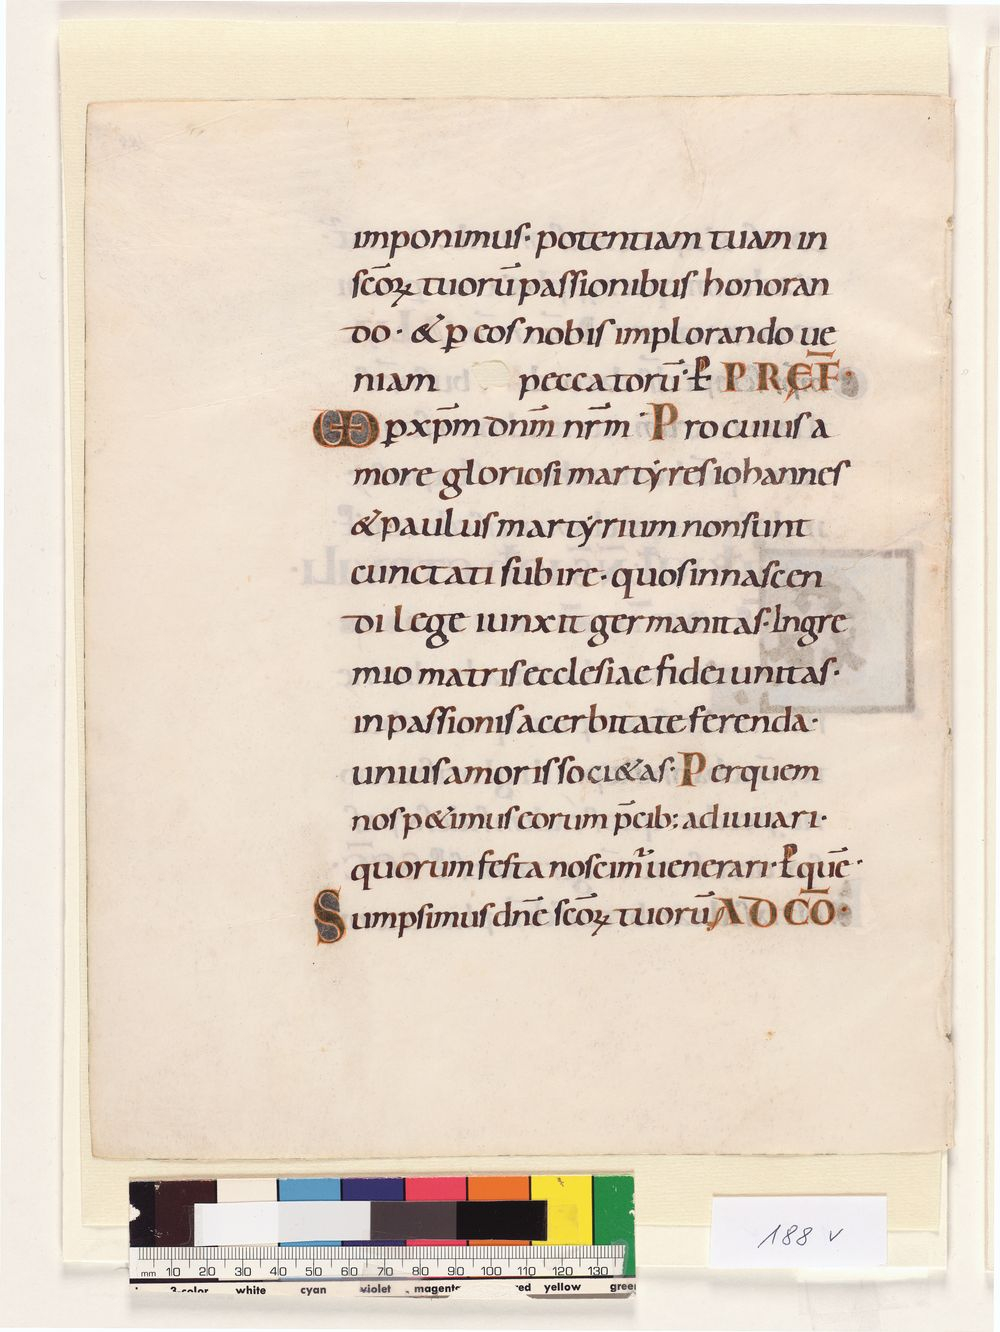 imponimus· potentiam tuam in
scōꝝ tuorū passionibus honoran
do· & ꝑ eos nobis implorando ue
niam peccatorū· ꝑ PREF̄·
ꝑ xp̄m dnm̄ nr̄m· Pro cuius a
more gloriosi martẏres iohannes
& paulus martẏrium non sunt
cunctati subire· quos in nascen
di lege iunxit germanitas· In gre
mio matris ecclesiae fidei unitas·
in passionis acerbitate ferenda·
unius amoris soci&as· Per quem
nos p&imus eorum p̄cib; adiuuari·
quorum festa noscimur uenerari· ꝑ quē·
Sumpsimus dnē scōꝝ tuorū AD CŌ·
188 v
mm 10 20 30 40 50 60 70 80 90 100 110 120 130
3-color white cyan violet magenta red yellow green